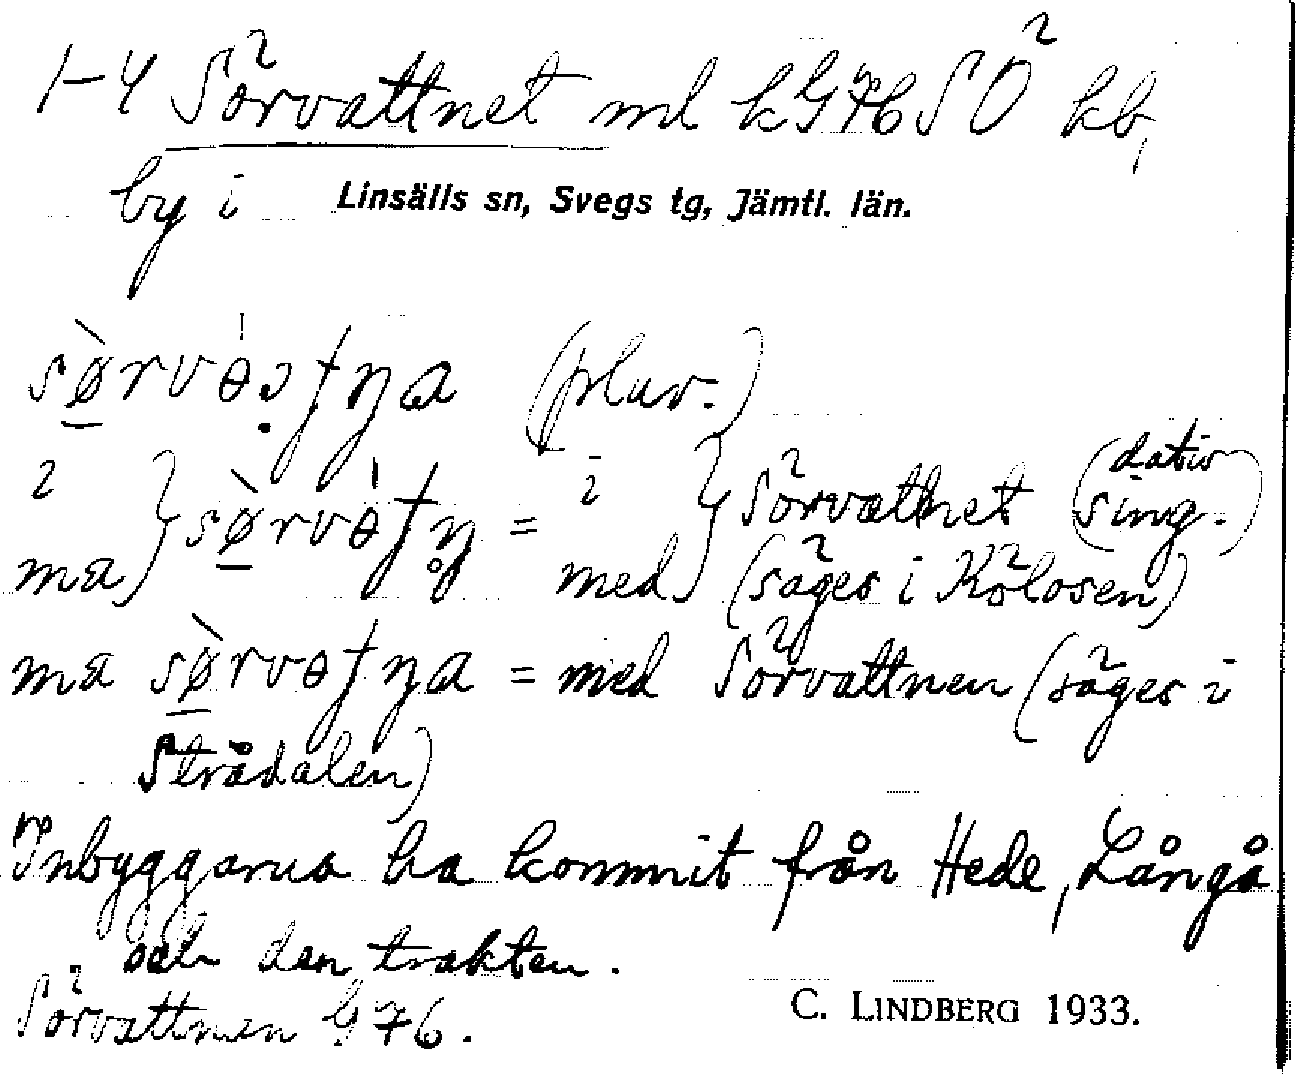 1-4 Sörvattnet ml k G 76 SÖ kb,
by i Linsälls sn, Svegs tg, Jämtl. län.
(plur.)
i } = i } Sörvattnet (dativ sing.)
ma } med } (säges i Kölosen)
ma = med Sörvattnen (säges i
Strådalen)
Inbyggarna ha kommit från Hede, Långå
och den trakten.
Sörvattnen G 76.
C. LINDBERG 1933.